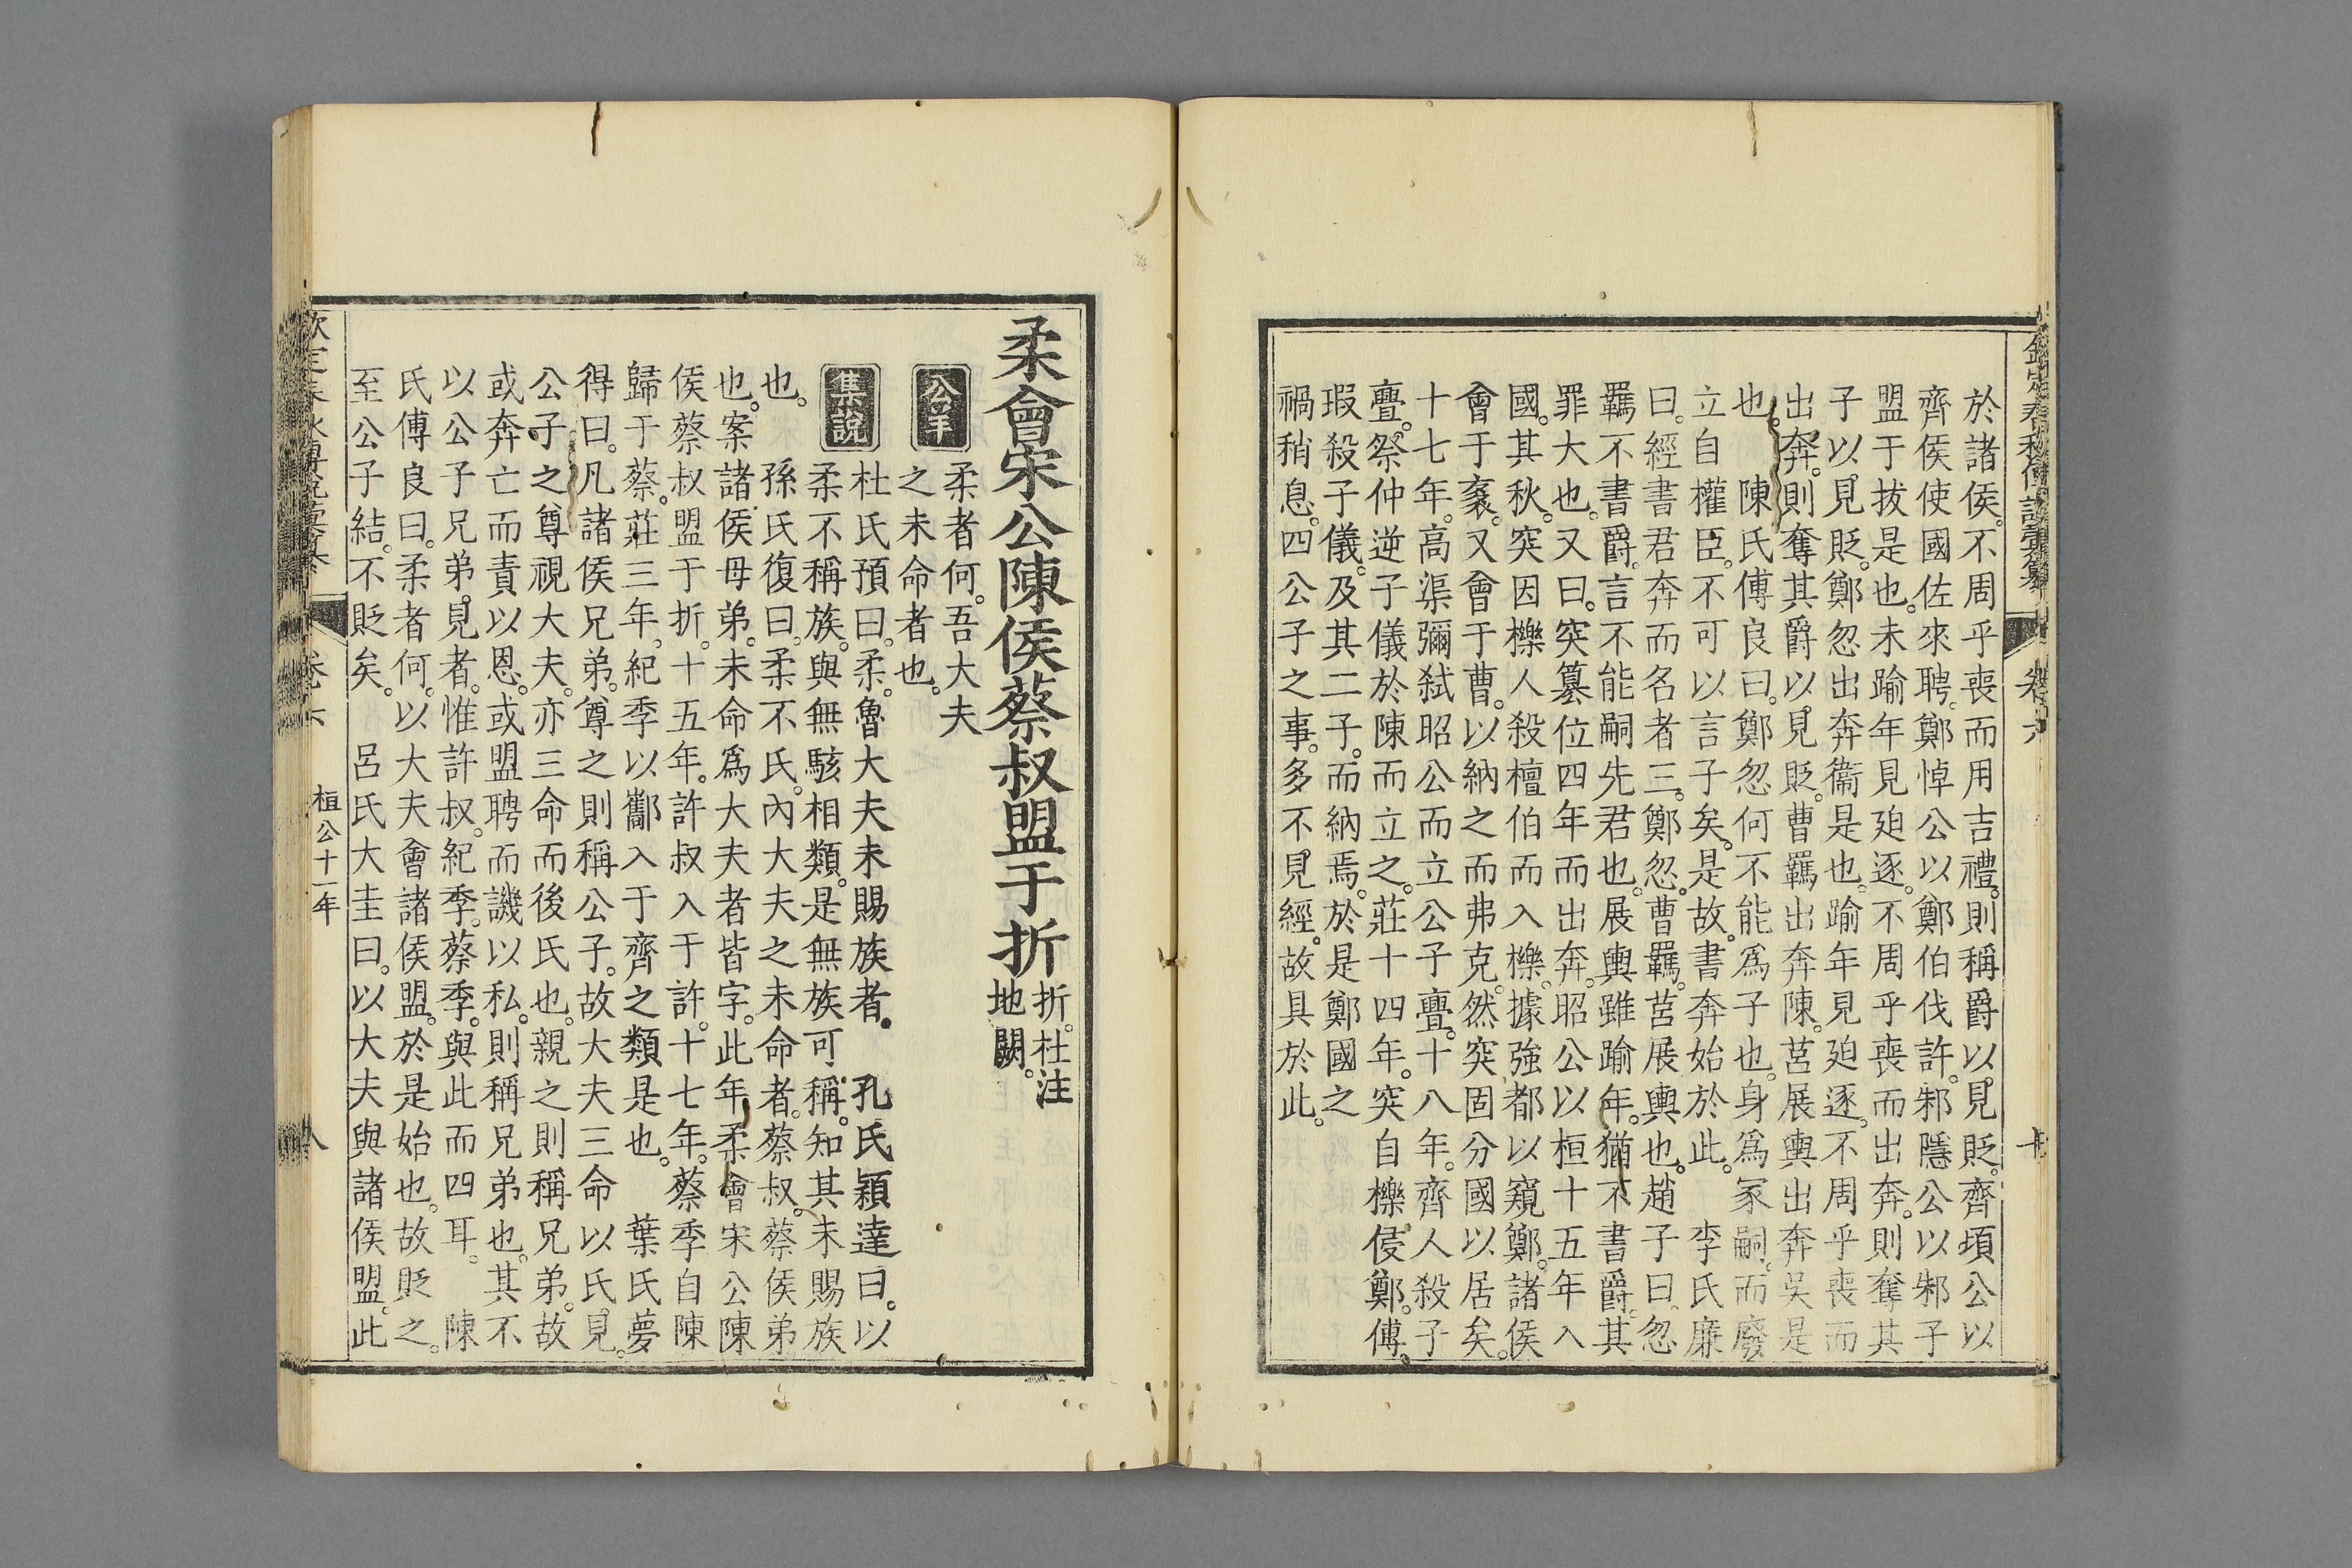 於諸侯。不周乎喪而用吉禮。則稱爵以見貶。齊頃公以
齊侯使國佐來聘。鄭悼公以鄭伯伐許。邾隱公以邾子
盟于拔是也。未踰年見廹逐。不周乎喪而出奔。則奪其
子以見貶。鄭忽出奔衞是也。踰年見廹逐。不周乎喪而
出奔。則奪其爵以見貶。曹羈出奔陳。莒展輿出奔吳是
也。 陳氏傅良曰。鄭忽何不能爲子也。身爲冢嗣。而廢
立自權臣。不可以言子矣。是故。書奔始於此。 李氏廉
曰。經書君奔而名者三。鄭忽。曹羈。莒展輿也。趙子曰。忽
羈不書爵。言不能嗣先君也。展輿雖踰年。猶不書爵。其
罪大也。又曰。突篡位四年而出奔。昭公以桓十五年入
國。其秋。突因櫟人殺檀伯而入櫟。據強都以窺鄭。諸侯
會于袲。又會于曹。以納之而弗克。然突固分國以居矣。
十七年。高渠彌弑昭公而立公子亹。十八年。齊人殺子
亹。祭仲逆子儀於陳而立之。莊十四年。突自櫟侵鄭。傅
瑕殺子儀。及其二子。而納焉。於是鄭國之
禍稍息。四公子之事。多不見經。故具於此。
卷六
柔會宋公陳侯蔡叔盟于折
折。杜注
地闕。
公羊
柔者何。吾大夫
之未命者也。
集說
杜氏預曰。柔。魯大夫未賜族者。 孔氏穎達曰。以
柔不稱族。與無駭相類。是無族可稱。知其未賜族
也。 孫氏復曰。柔不氏。內大夫之未命者。蔡叔。蔡侯弟
也。案諸侯母弟。未命爲大夫者皆字。此年柔會宋公陳
侯蔡叔盟于折。十五年。許叔入于許。十七年。蔡季自陳
歸于蔡。莊三年。紀季以酅入于齊之類是也。 葉氏夢
得曰。凡諸侯兄弟。尊之則稱公子。故大夫三命以氏。見
公子之尊視大夫。亦三命而後氏也。親之則稱兄弟。故
或奔亡而責以恩。或盟聘而譏以私。則稱兄弟也。其不
以公子兄弟。見者。惟許叔。紀季。蔡季。與此而四耳。 陳
氏傅良曰。柔者何。以大夫會諸侯盟。於是始也。故貶之。
至公子結。不貶矣。 呂氏大圭曰。以大夫與諸侯盟。此
卷六
桓公十一年
八